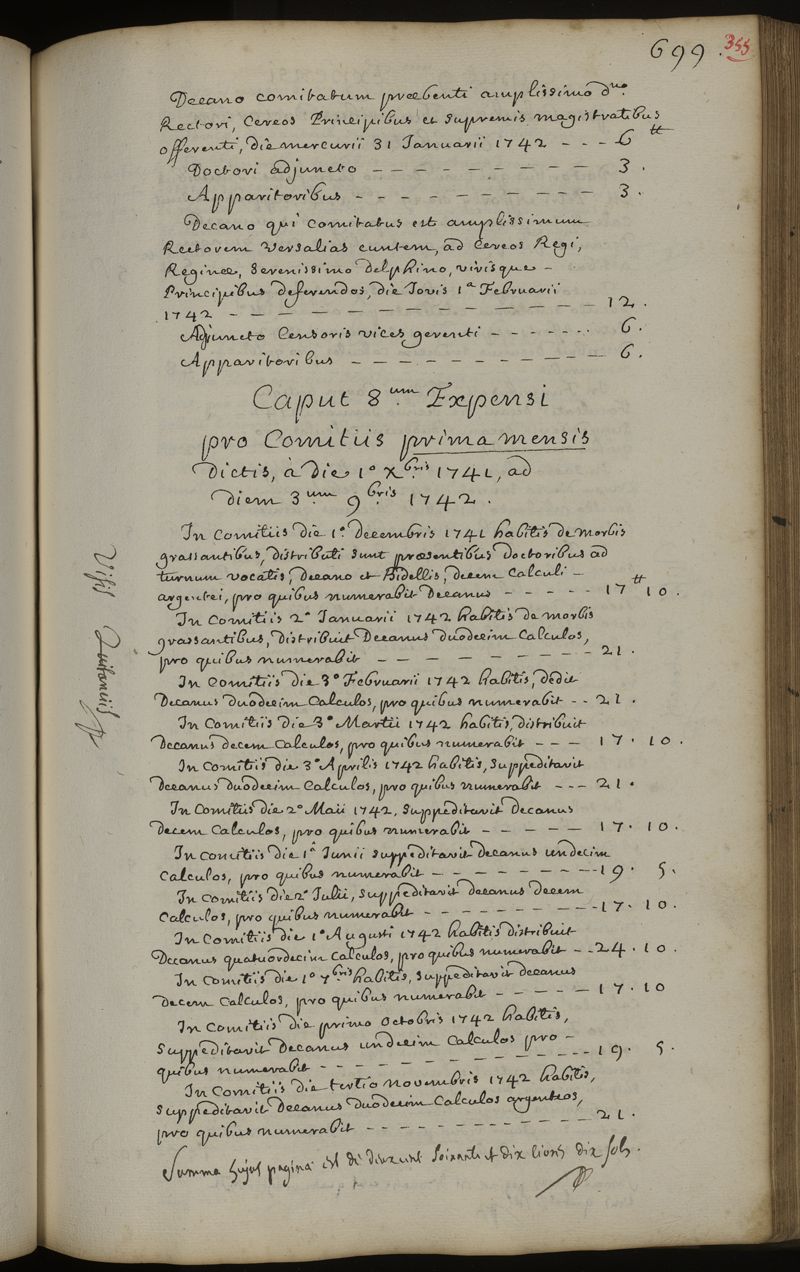 699. 355
Decano comitatum præbenti amplissimo d.no
Rectori, Cereos Principibus et supremis magistratibus
offerenti, die mercurii 31 Januarii 1742 - - - 6 ₶
Doctori adjuncto - - - - - - - - - 3.
Apparitoribus - - - - - - - - - - 3.
Decano qui comitatus est amplissimum
Rectorem Versalias euntem, ad Cereos Regi,
Reginæ, Serenissimo delphino, vivisque -
Principibus deferendos, die Jovis 1.a Februarii
1742 - - - - - - - - - - - - - - - 12.
Adjuncto Censoris vices gerenti - - - - - - - 6.
Apparitoribus - - - - - - - - - - - - 6.
Caput 8.um Expensi
pro Comitiis prima mensis
dictis, à die 1.o Xbris 1741, ad
diem 3.um 9bris 1742.
In Comitiis die 1.a Decembris 1741 habitis de morbis
grassantibus, distributi sunt præsentibus doctoribus ad
turnum vocatis, decano et Bidellis, decem Calculi -
argentei, pro quibus numerabit Decanus - - - - - 17 ₶ 10.
In Comitiis 2.a Januarii 1742 habitis de morbis
grassantibus, distribuit Decanus duodecim Calculos,
pro quibus numerabit - - - - - - - - 21.
In Comitiis die 3.a Februarii 1742 habitis, dedit
Decanus duodecim Calculos, pro quibus numerabit - - 21.
In Comitiis die 3.a Martii 1742 habitis, distribuit
Decanus decem Calculos, pro quibus numerabit - - - 17. 10.
In Comitiis die 3.a Aprilis 1742 habitis, suppeditavit
decanus duodecim Calculos, pro quibus numerabit - - - 21.
In Comitiis die 2.a Maii 1742, suppeditavit decanus
decem Calculos, pro quibus numerabit - - - - - 17. 10.
In comitiis die 1.a Junii suppeditavit decanus undecim
Calculos, pro quibus numerabit - - - - - - - 19. 5.
In Comitiis die 2.a Julii, suppeditavit decanus decem
Calculos, pro quibus numerabit - - - - - - - 17. 10.
In Comitiis die 1.a Augusti 1742 habitis distribuit
Decanus quatuordecim Calculos, pro quibus numerabit - - 24. 10.
In Comitiis die 1.o 7bris habitis, suppeditavit decanus
decem Calculos, pro quibus numerabit - - - - - 17. 10
In Comitiis die primo Octobris 1742 habitis,
suppeditavit Decanus undecim Calculos pro -
quibus numerabit - - - - - - - - - - 19. 5.
In Comitiis die tertio novembris 1742 habitis,
suppeditavit Decanus duodecim Calculos argenteos,
pro quibus numerabit - - - - - - - - - 21.
Summa hujus pagina est de deux cent soixante et dix livres dix sols.